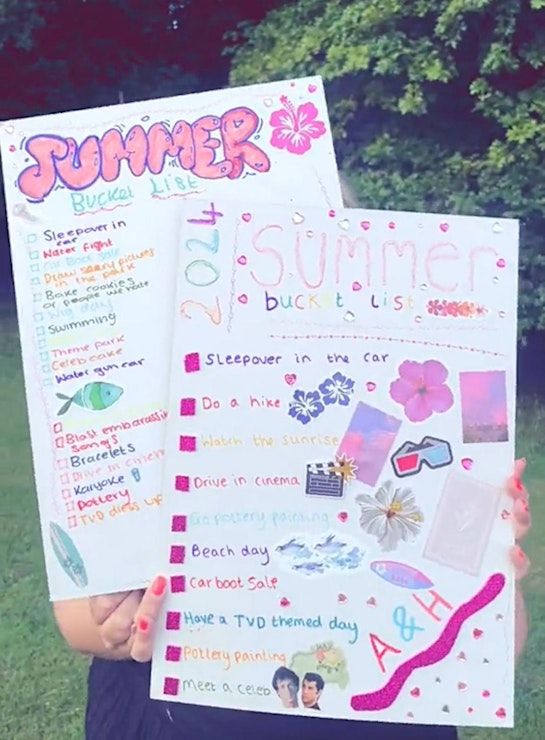 SUMMER
Bucket List
Sleepover in
car
Water fight
Car Boot Sale
Draw scary pictures
in the park
Bake cookies
of people we hate
Wig day
Swimming
Theme park
Celeb cake
Water gun car
Blast embarassin
songs
Bracelets
Drive in cinem
Karyoke
Pottery
TVD dress up
2024
SUMMer
bucket list
Sleepover in the car
Do a hike
Watch the sunrise
Drive in cinema
Go pottery painting
Beach day
Car boot sale
Have a TVD themed day
Pottery painting
Meet a celeb
A & H